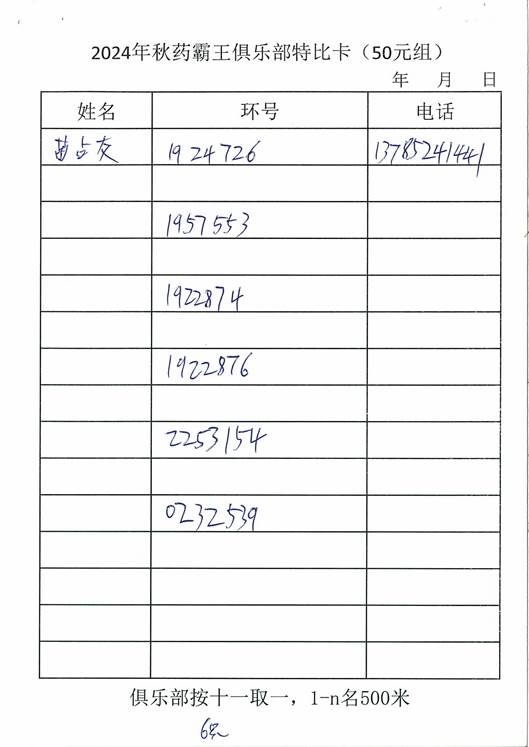 2024年秋药霸王俱乐部特比卡（50元组）
年 月 日
姓名 环号 电话
苗占友 1924726 13785241441
1957553
1922874
1922876
2253154
0232539
俱乐部按十一取一，1-n名500米